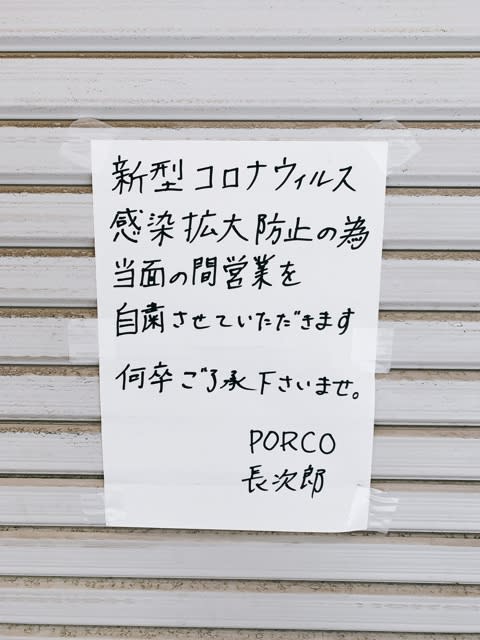 新型コロナウィルス
感染拡大防止の為
当面の間営業を
自粛させていただきます
何卒ご了承下さいませ。
PORCO
長次郎